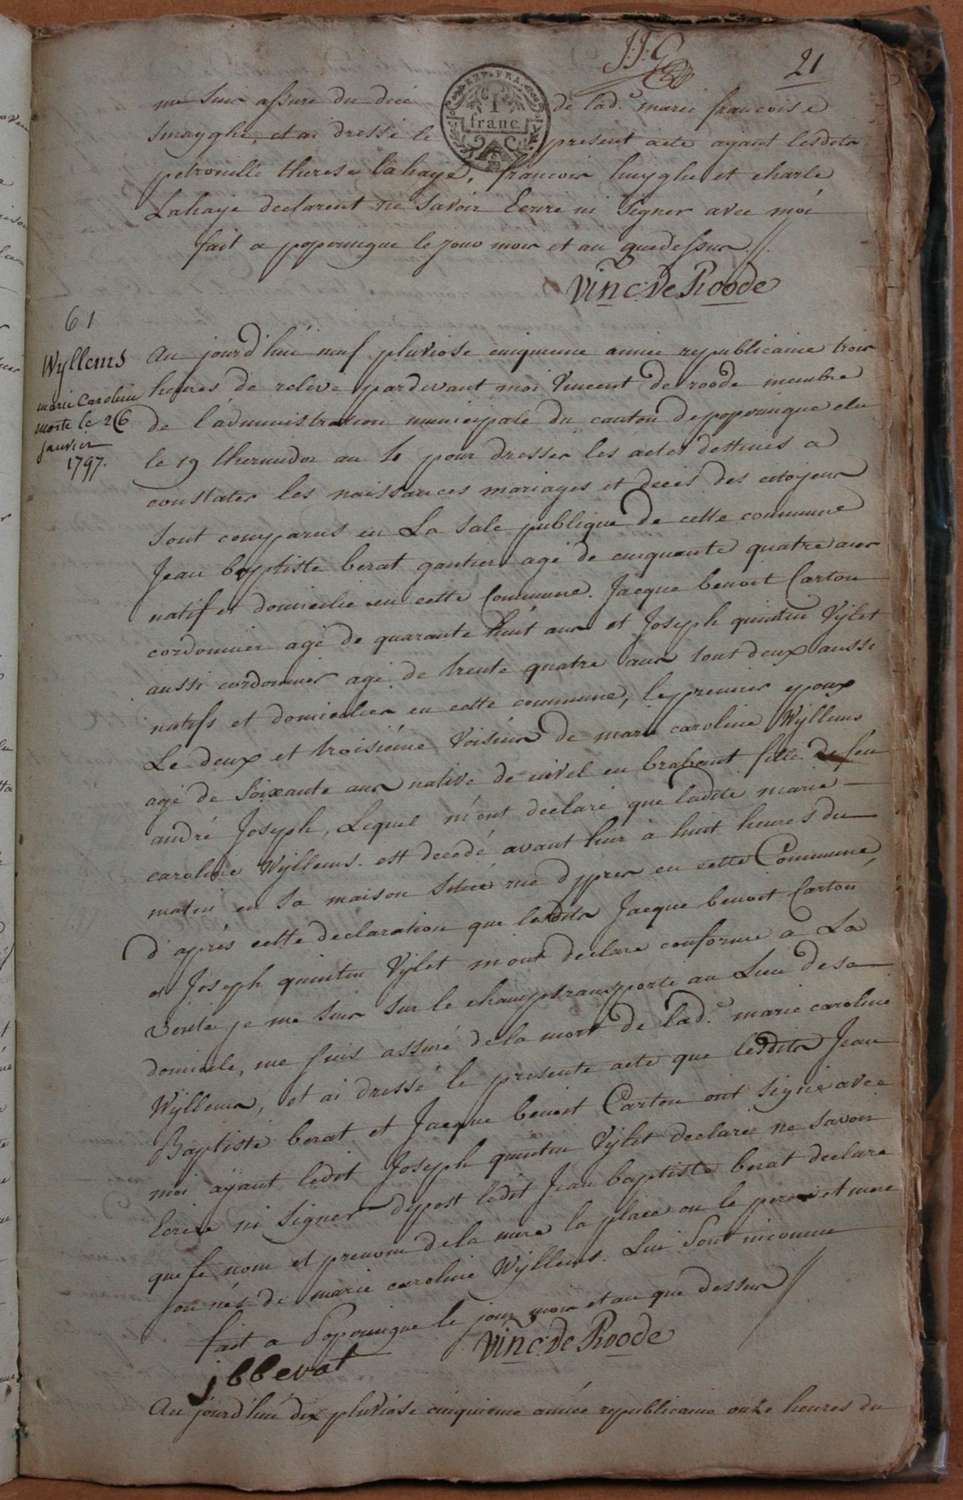 J.J.G
21
REP. FRA.
1
franc
me suis assuré du decé de lad.e marie francoise
Smayghe, et ai dressé le present acte ayant lesdits
petronille therese Lahaye, francois huyghe et charle
Lahaye declarent ne savoir Ecrire ni Signer avec moi
fait a poperingue le jour mois et an que dessus //.
Vinc: De Roode
61
Wyllems
marie Caroline
morte le 26
janvier
1797.
Au jourd'hui neuf pluviose cinquieme année republicaine trois
heures de relevé pardevant moi Vincent de roode membre
de l'administration municipale du canton de poperingue elu
le 19 thermidor an 4 pour dresser les actes destinés a
constater les naissances mariages et decés des citoyens
Sont comparus en La Sale publique de cette commune
Jean baptiste berat gantier agé de cinquante quatre ans
natif et domicilié en cette Commune. Jacque benoit Carton
cordonnier agé de quarante huit ans et Joseph quintin Vylet
aussi cordonnier agé de trente quatre ans tout deux aussi
natifs et domiciliés en cette commune, le premier epoux
Le deux et troisiéme Voisins de marie caroline Wyllems
agé de Soixante ans native de nivel en brabant fille de feu
andré Joseph, Lequel m'ont declaré que ladite marie
caroline Wyllems. est decedé avant hier à huit heures du
matin en Sa maison Situé rue d'ypres en cette Commune,
d'après cette declaration que lesdits Jacque benoit Carton
et Joseph quintin Vylet m'ont declaré conforme a La
verité je me suis sur le champ transporté au Lieu de sa
domicile, me suis assuré de la mort de lad.e marie caroline
Wyllems, et ai dressé le presente acte que lesdits Jean
Baptiste berat et Jacque benoit Carton ont signé avec
moi ayant ledit Joseph quintin Vylet declaré ne savoir
Ecrire ni Signer ledit Jean baptiste berat declare
que le nom et prenom de la mere la place ou le pere et mere
sont nés de marie caroline Wyllems. Lui Sont inconnu
fait a Poperingue le jour mois et an que dessus //
Vinc: De Roode
jbberat
Au jourd'hui dix pluviose cinquieme année republicaine onze heures du